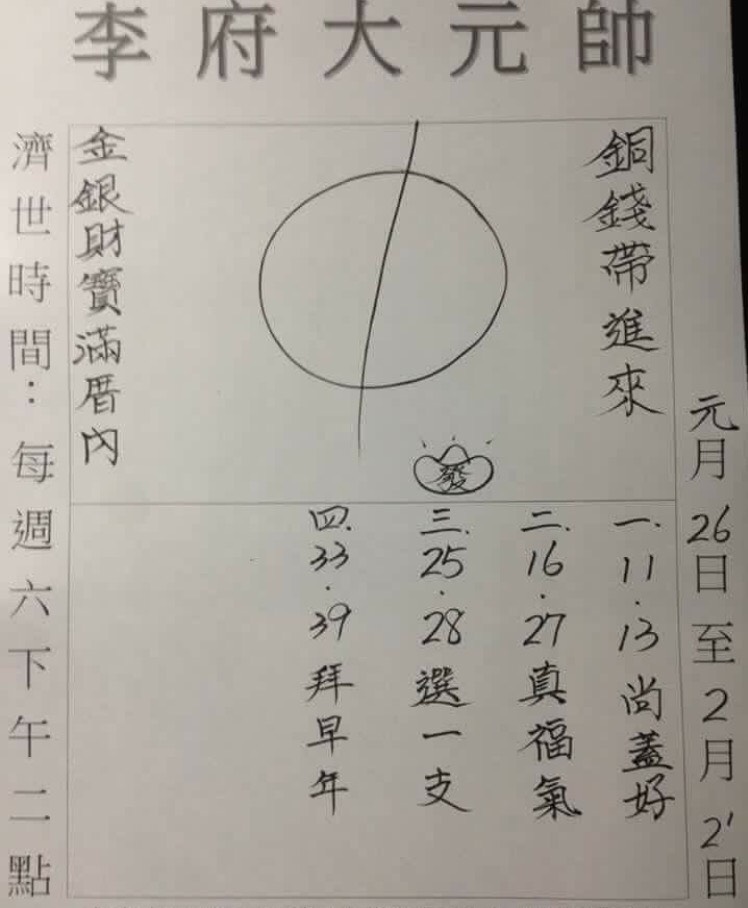 李府大元帥
元月26日至2月2'日
銅錢帶進來
金銀財寶滿厝內
發
一.11.13尚蓋好
二.16.27真福氣
三.25.28選一支
四.33.39拜早年
濟世時間：每週六下午二點